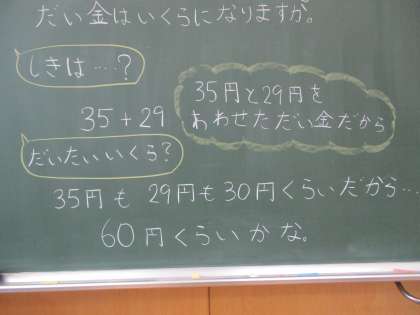 だい金はいくらになりますか。
しきは…?
35+29
35円と29円を
あわせただい金だから
だいたいいくら?
35円も 29円も30円くらいだから…
60円くらいかな。